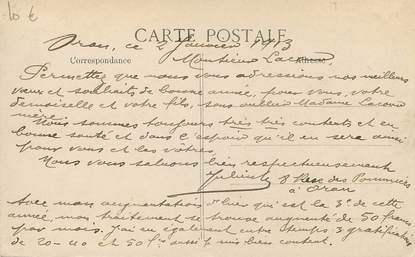 10 €
CARTE POSTALE
Oran, ce 2 Janvier 1913
Correspondance
Adresse
Monsieur Lacour,
Permettez que nous vous adressions nos meilleurs
vœux et souhaits de bonne année, pour vous, votre
demoiselle et votre fils, sans oublier Madame Lacour
mère.
Nous sommes toujours très très contents et en
bonne santé et dans l'espoir qu'il en sera ainsi
pour vous et les vôtres
Nous vous saluons bien respectueusement
8 Rue des
à Oran
Avec mon augmentation bien qui est la 3e de cette
année, mon traitement se trouve augmenté de 50 francs
par mois. J'ai eu également entre temps 3 gratifications
de 20-40 et 50 frs aussi je suis bien content.